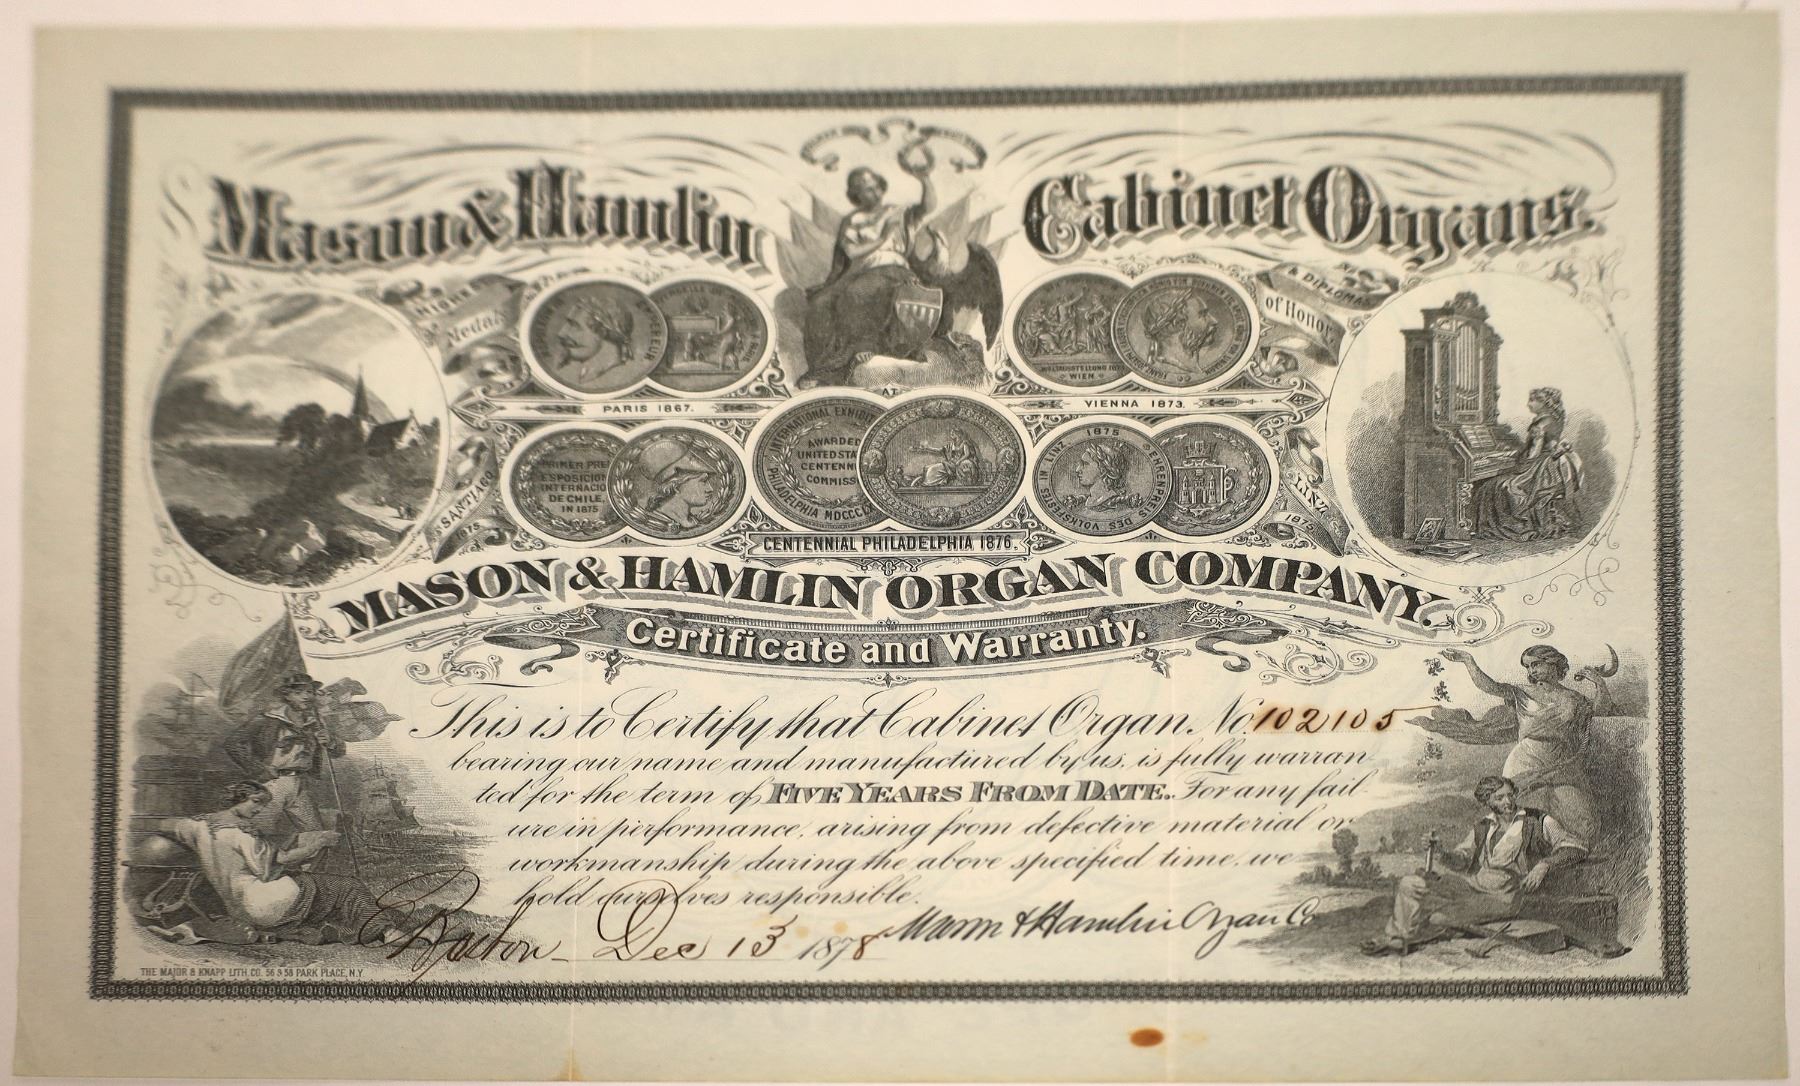 Mason & Hamlin Cabinet Organs.
HIGHEST Medals & DIPLOMA of Honor
EMPEREUR
WELTAUSSTELLUNG 1873 WIEN
AT
PARIS 1867. VIENNA 1873.
SANTIAGO 1875
PRIMER PRE
ESPOSICION
INTERNACIO
DE CHILE,
IN 1875
INTERNATIONAL EXHIBIT
AWARDED
UNITED STA
CENTENN
COMMISS
PHILADELPHIA MDCCCL
1875 EHRENPREIS DES VOLKSFESTES IN LINZ
LINZ 1875
CENTENNIAL PHILADELPHIA 1876.
MASON & HAMLIN ORGAN COMPANY.
Certificate and Warranty.
This is to Certify that Cabinet Organ No. 102105
bearing our name and manufactured by us, is fully warran-
ted for the term of FIVE YEARS FROM DATE. For any fail-
ure in performance, arising from defective material or
workmanship during the above specified time, we
hold ourselves responsible.
Boston Dec 13 1878 Mason & Hamlin Organ Co
THE MAJOR & KNAPP LITH. CO. 56 & 58 PARK PLACE, N.Y.